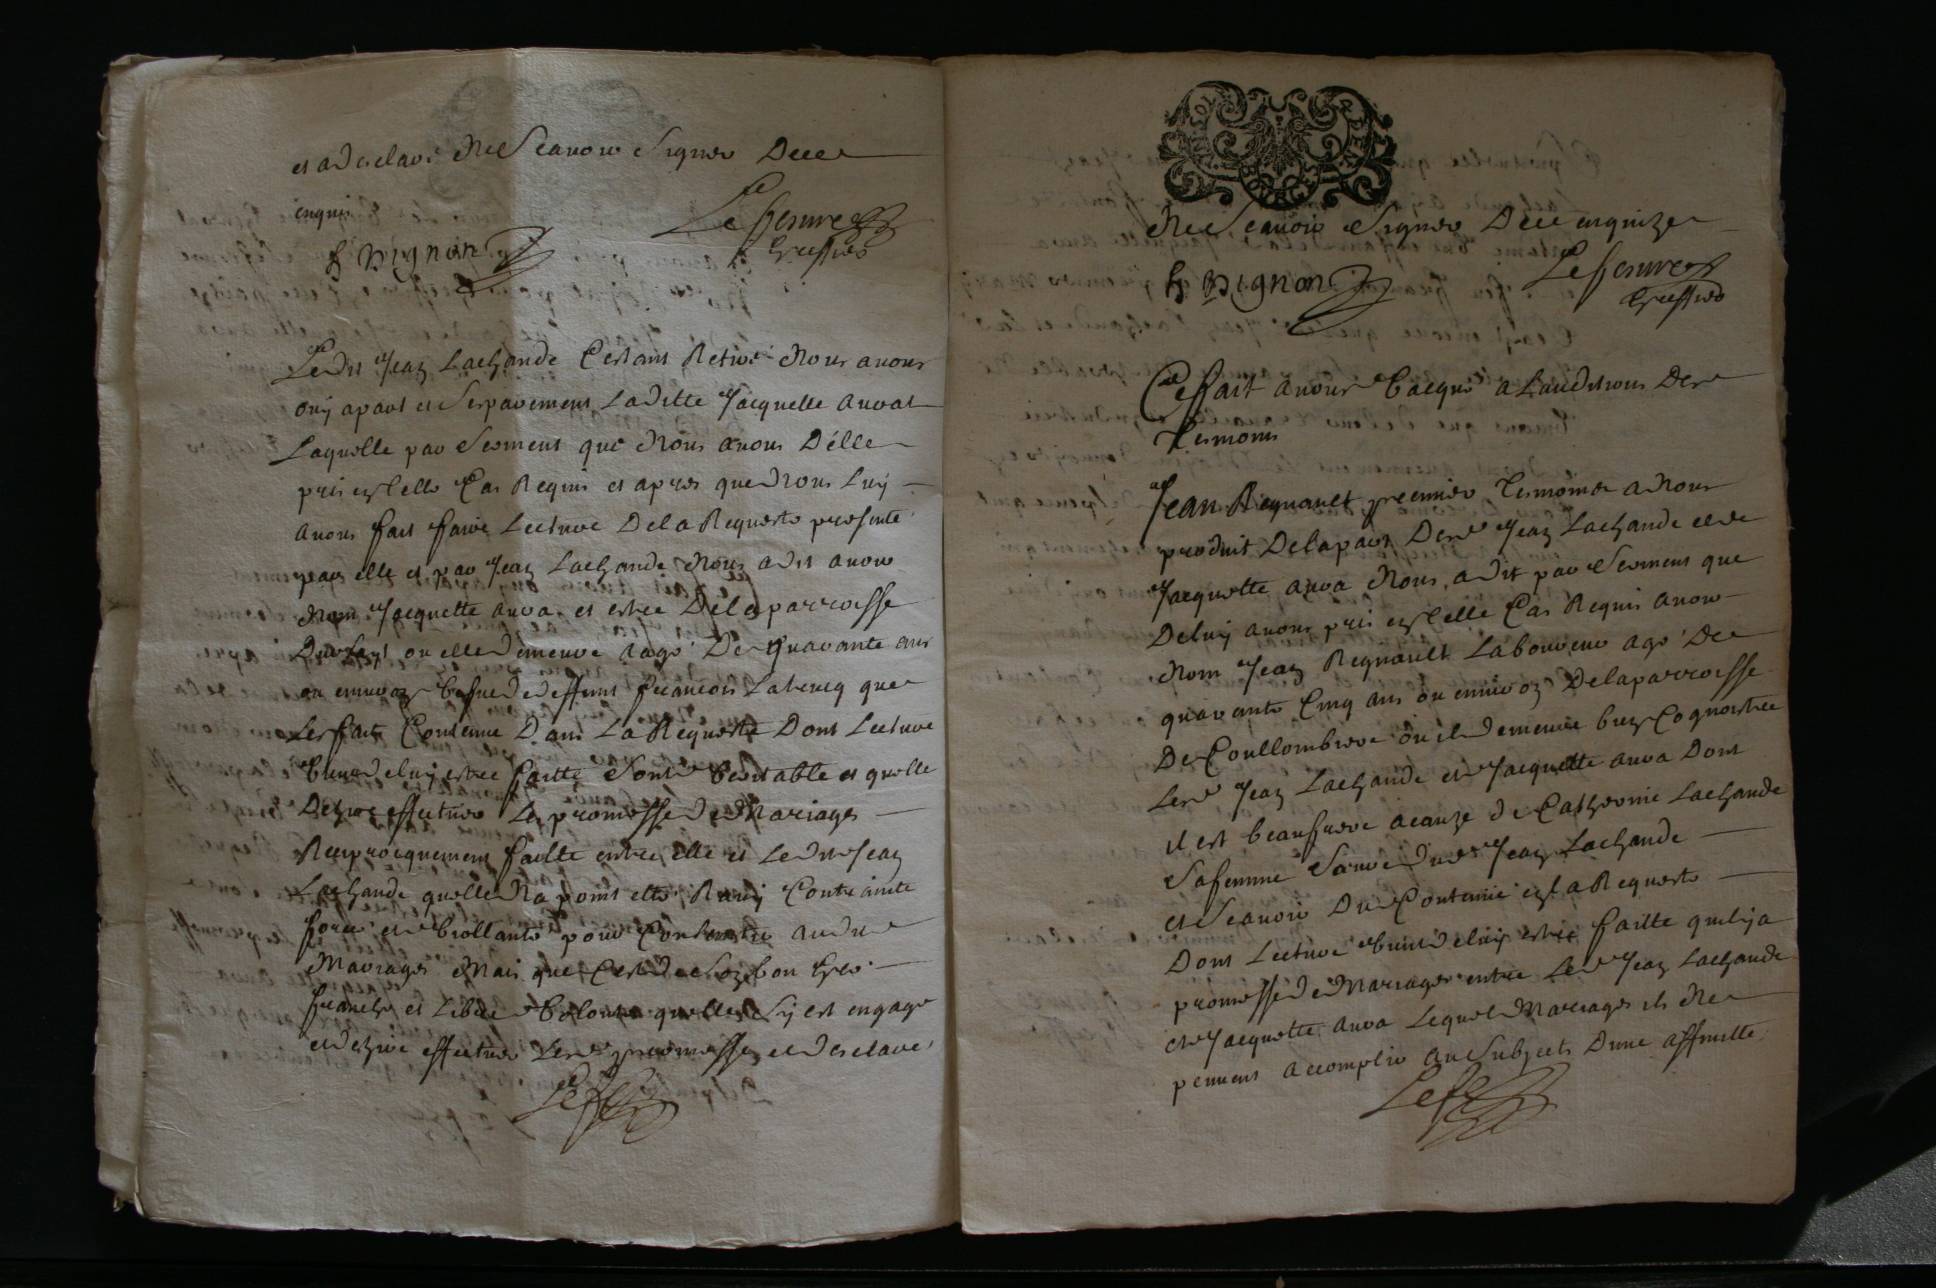 et a desclaré ne scavoir signer de ce
enquis
h pignon
Lefebure
Greffier
Ledit Jean Lachande s'estant Retiré nous avons
ouy apart et separement Laditte Jacquette auvat
Laquelle par serment que nous avons d'elle
pris en telle Cas Requis et apres que nous Luy
avons fait faire Lecture de la Requeste presenté
par elle et par Jean Lachande nous a dit avoir
nom Jacquette auva et estre de la parroisse
ou elle demeure aagé de quarante ans
ou environ vefve de deffunt francois que
Les faits Contenue dans La Requeste dont Lecture
vient de luy estre faitte sont veritable et quelle
desire effectuer La promesse de Mariage
Reciprocquement faitte entre elle et Ledit Jean
Lachande quelle Na point esté Contrainte
force et viollanté pour audit
Mariage Mais que C'est de son bon gré
franche et Libre volonté quelle sy est engagé
et desire effectuer Lesd promesse et desclaré
Lefe
ne scavoir signer de ce enquize
h pignon
Lefebure
Greffier
Ce fait avons vacqué a Laudition des
tesmoins
Jean Regnault premier tesmoins a nous
produit de la part desd Jean Lachande et de
Jacquette auva nous a dit par serment que
de luy avons pris en telle Cas Requis avoir
nom Jean Regnault Laboureur agé de
quarante Cinq ans ou environ de la parroisse
de Coullombiere ou il demeure bien Cognoistre
Lesd Jean Lachande et Jacquette auva dont
il est beaufrere acauze de Catherinne Lachande
sa femme sœur dud Jean Lachande
et scavoir du Contenue en la Requeste
dont Lecture vient de luy estre faitte quil y a
promesse de Mariage entre Led Jean Lachande
et Jacquette auva Lequel Mariage ils ne
peuvent accomplir au subject dune affinitte
Lefe